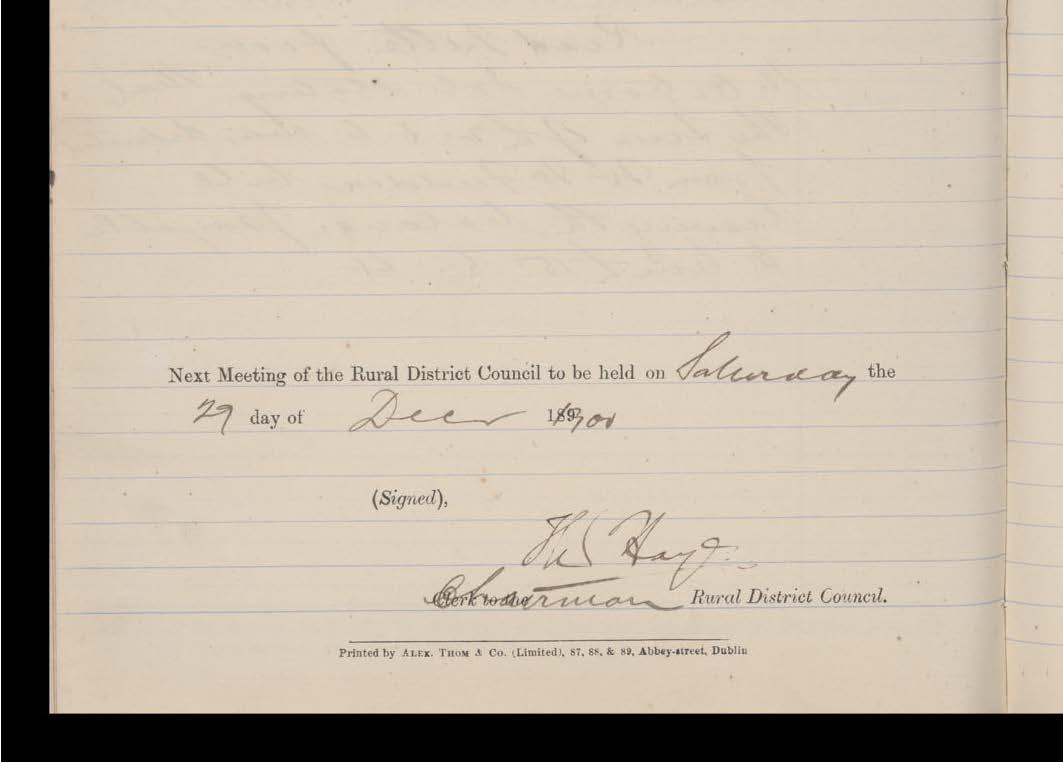 Next Meeting of the Rural District Council to be held on Saturday the
29 day of Decr 1900
(Signed),
Chairman Rural District Council.
Printed by ALEX. THOM & Co. (Limited), 87, 88, & 89, Abbey-street, Dublin